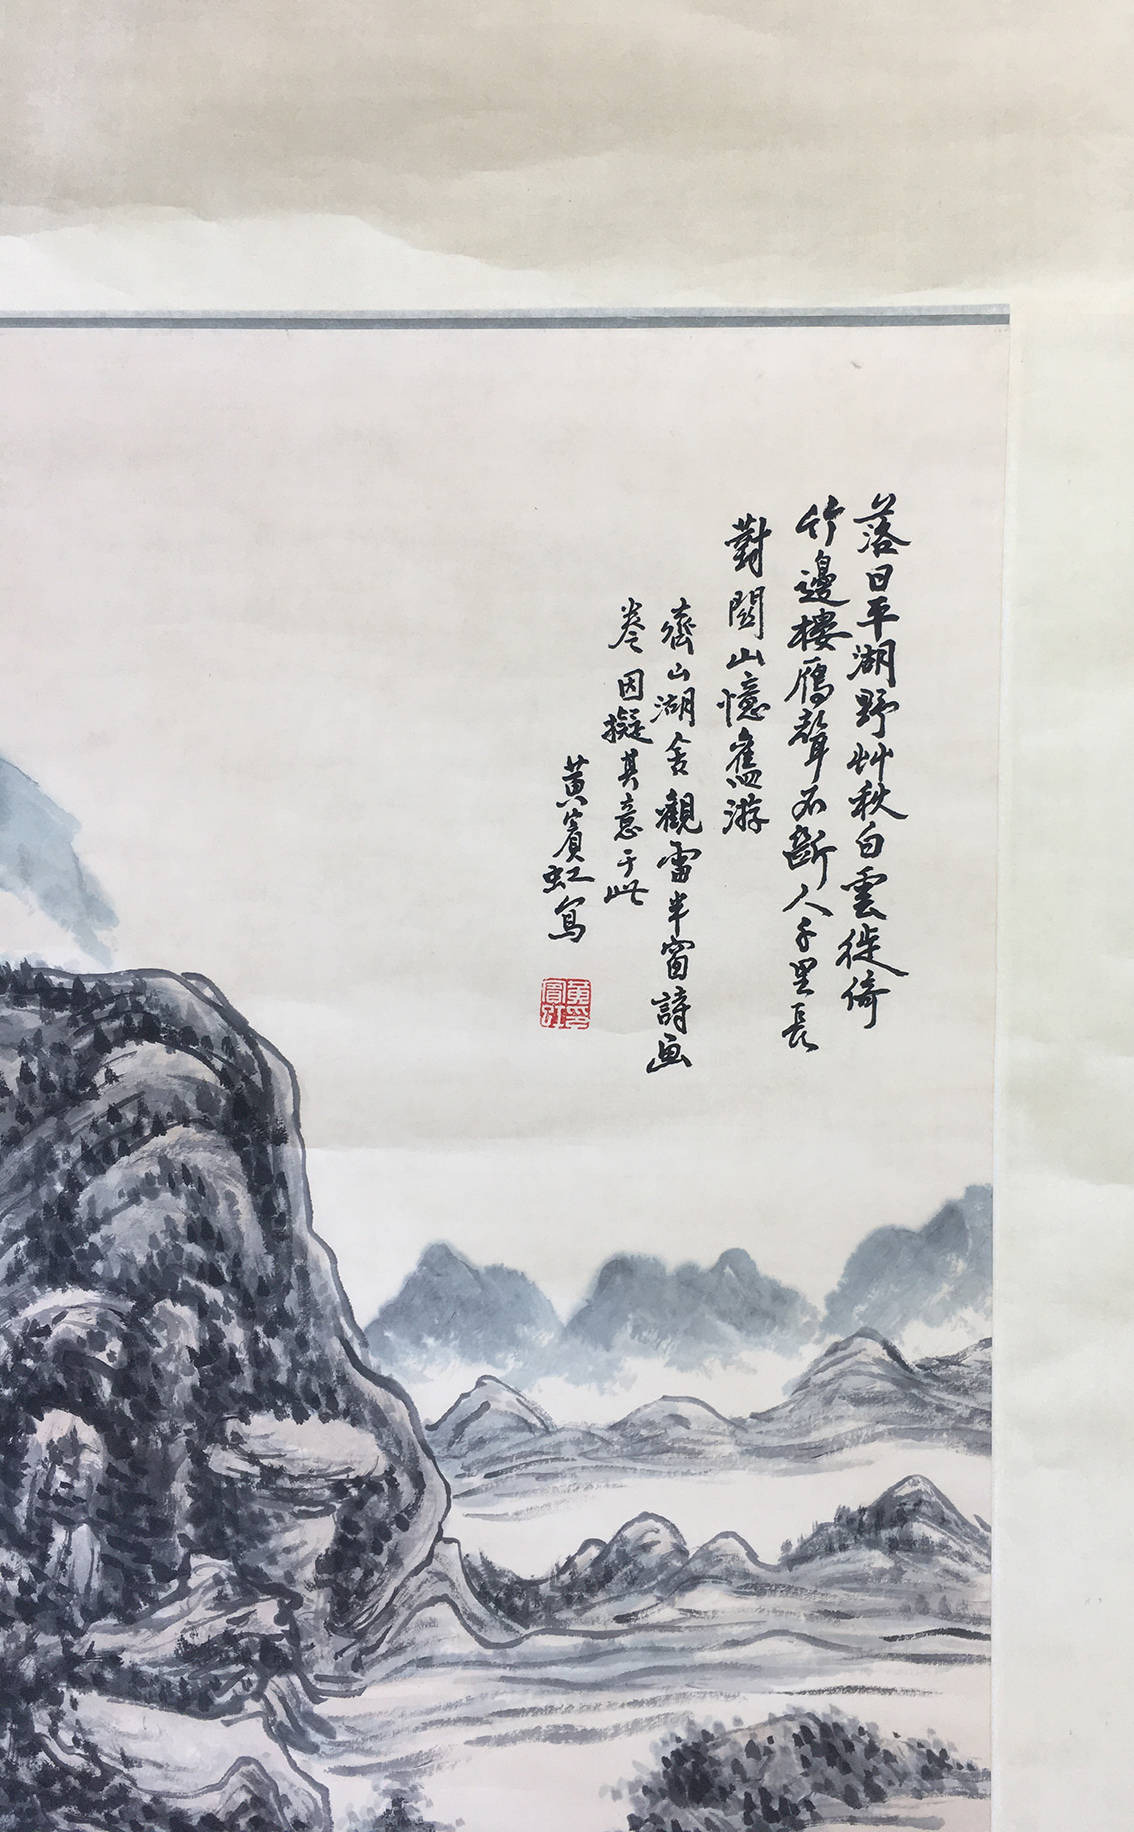 落日平湖野艸秋白雲徙倚
竹邊樓雁聲不斷人千里長
對關山憶舊游
齊山湖舍觀雷半窗詩画
卷因擬其意于此
黃賓虹寫
黃賓虹印